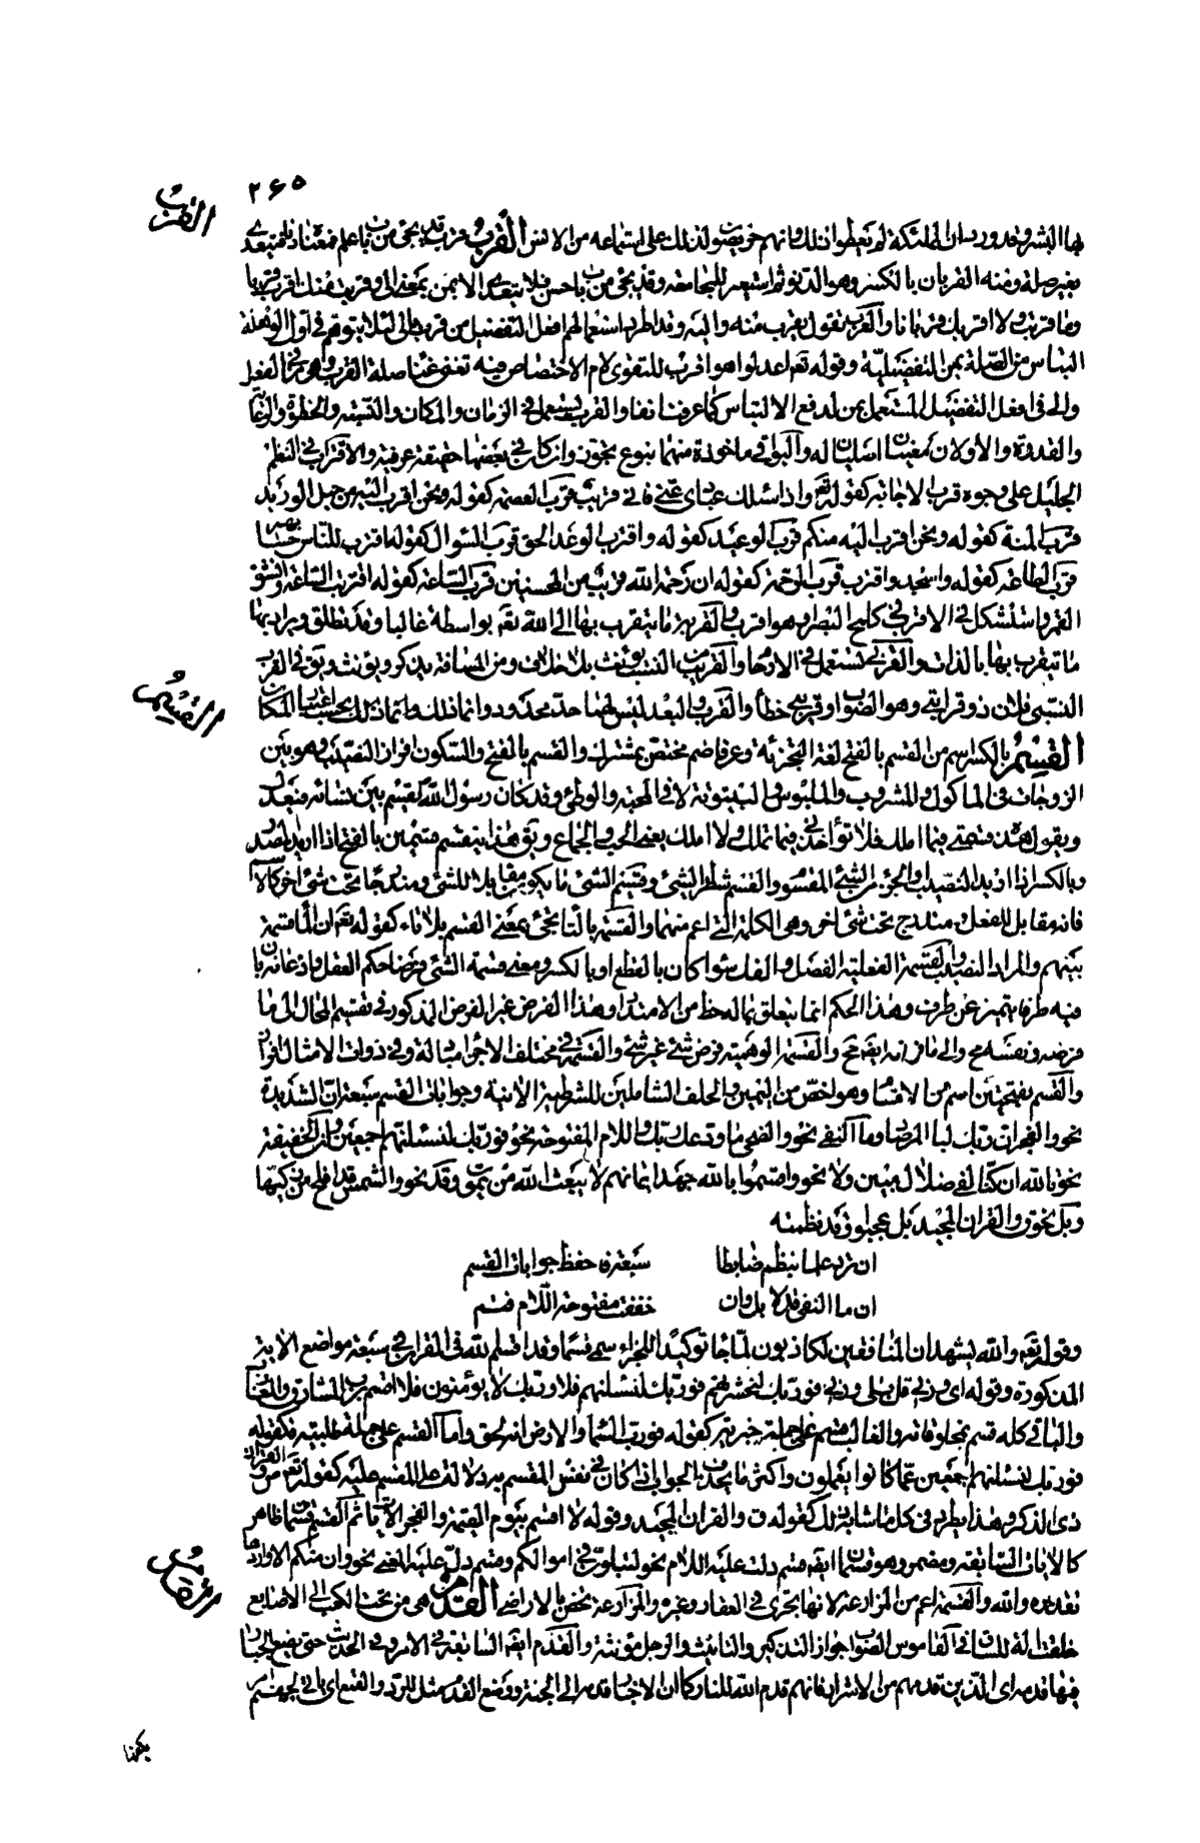 ٢٦٥
القرب
بها البشر وقد ورد ان الملائكة لم يعطوا ذلك وانهم حريصون لذلك على استماعه من الانس القرب قرب يجئ من باب علم فمعناه دنا فيتعدى
بغير صلة ومنه القربان بالكسر وهو الدنو ثم استعير للمجامعة وقد يجئ من باب حسن فلا يتعدى الا بمن بمعنى الى وقربت منك اقرب قربا
وما قربت ولا اقربك قربانا والعرب تقول يقرب منه واليه وقد اطرد استعمالهم افعل التفضيل من قرب بالى لئلا يتوهم في اول الوهلة
التباس من الصلة بمن التفضيلية وقوله تعالى اعدلوا هو اقرب للتقوى لام الاختصاص فيه تغني عن صلة القرب وهو من الفعل
والى في افعل التفضيل المستعمل بمن لدفع الالتباس كما عرفت آنفا والقرب يستعمل في الزمان والمكان والنسبة والحظوة والرعاية
والقدرة والاولان معنيان اصليان له والبواقي ماخوذة منهما بنوع تجوز وان كان في بعضها حقيقة عرفية والاقتراب في النظم
الجليل على وجوه قرب الاجابة كقوله تعالى واذا سألك عبادى عنى فانى قريب قرب العصمة كقوله ونحن اقرب اليه من حبل الوريد
قرب المنة كقوله ونحن اقرب اليه منكم قرب الوعيد كقوله واقترب الوعد الحق قرب السؤال كقوله اقترب للناس حسابهم
قرب الطاعة كقوله واسجد واقترب قرب الرحمة كقوله ان رحمة الله قريب من المحسنين قرب الساعة كقوله اقتربت الساعة وانشق
القمر واستشكل في الاقرب في كلمح البصر او هو اقرب والقربة ما يتقرب بها الى الله تعالى بواسطة غالبا وقد تطلق ويراد بها
ما يتقرب بها بالذات والقربى تستعمل في الارحام والقريب من النسب يؤنث بلا خلاف ومن المسافة يذكر ويؤنث ويق في القرب
النسبى فلان ذو قرابتى وهو الصواب وقريبى خطأ والقرب والبعد ليس لهما حد محدود وانما ذلك بحسب اعتبار المكان
القسم
القسم بالكسر اسم من القسم بالفتح لغة التجزئة وعرفا ضم مختص بمشترك والقسم بالفتح والسكون افراز النصيب وهو بين
الزوجات في الماكول والمشروب والملبوس والبيتوتة لا في المحبة والوطئ وقد كان رسول الله يقسم بين نسائه فيعدل
ويقول هذه قسمتى فيما املك فلا تؤاخذنى فيما تملك ولا املك يعنى الحب والجماع ويق هذا ينقسم قسمين بالفتح اذا اريد المصدر
وبالكسر اذا اريد النصيب او الجزء من الشئ المقسوم والقسم شطر الشئ وقسيم الشئ ما يكون مقابلا للشئ ومندرجا تحت شئ آخر كالاسم
فانه مقابل للفعل ومندرج تحت شئ آخر وهى الكلمة التى اعم منهما والقسمة بالتاء تجئ بمعنى القسم بلا تاء كقوله تعالى ان الماء قسمة
بينهم والمراد النصيب والقسمة الفعلية الفصل والفك سواء كان بالقطع او بالكسر ومعنى قسمة الشئ فرضا حكم العقل واذعانه بان
فيه طرفا يتميز عن طرف وهذا الحكم انما يتعلق بماله حظ من الامتداد وهذا الفرض غير الفرض المذكور في تقسيم المحال الى ما
والقسم بفتحتين اسم من الاقسام وهو اخص من اليمين والحلف الشاملين للشرطية الآتية وجوابات القسم سبعة ان الشديدة
نحو والفجر ان ربك لبالمرصاد وما النفى نحو والضحى ما ودعك ربك واللام المفتوحة نحو فوربك لنسئلنهم اجمعين وان الخفيفة
نحو تالله ان كنا لفى ضلال مبين ولا نحو واقسموا بالله جهد ايمانهم لا يبعث الله من يموت وقد نحو والشمس قد افلح من زكيها
وبل نحو ق والقران المجيد بل عجبوا وقد نظمته
ان ترد علما بنظم ضابطا سبعة حفظ جوابات القسم
ان ما النفى قد لا بل وان خففت مفتوحة اللام قسم
وقوله تعالى والله يشهد ان المنافقين لكاذبون لما جاء توكيدا للجزاء سمى قسما وقد اقسم الله في القران في سبعة مواضع الآية
المذكورة وقوله اى وربى قل بلى وربى فوربك لنحشرنهم فوربك لنسئلنهم فلا وربك لا يؤمنون فلا اقسم برب المشارق والمغارب
والباقى كله قسم بمخلوقاته والغالب قسمهم على جملة خبرية كقوله فورب السماء والارض انه لحق واما القسم على جملة طلبية فكقوله
فوربك لنسئلنهم اجمعين عما كانوا يعملون واكثر ما يحذف الجواب اذا كان في نفس المقسم به دلالة على المقسم عليه كقوله تعالى ص والقران
ذى الذكر وهذا يطرد في كل ما شابه ذلك كقوله ق والقران المجيد وقوله لا اقسم بيوم القيمة والفجر الآيات ثم القسم قسمان ظاهر
كالايات السابقة ومضمر وهو قسمان ايضا قسم دلت عليه اللام نحو لتبلون في اموالكم وقسم دل عليه المعنى نحو وان منكم الا واردها
القدم
تقديره والله والقسمة اعم من المزارعة لانها تجرى في العقار وغيره والمزارعة تختص بالاراضى القدم هى من تحت الكعب الى الاصابع
خلقت آلة للساق في القاموس الصواب جواز التذكير والتانيث والرجل مؤنثة والقدم ايضا السابقة في الامر وفي الحديث حتى يضع الجبار
فيها قدمه اى الذين قدمهم من الاشرار فانهم قدم الله للنار كما ان الاخيار قدمه الى الجنة ووضع القدم مثل للردع والقمع اى ياتى لجهنم امر
يكفها